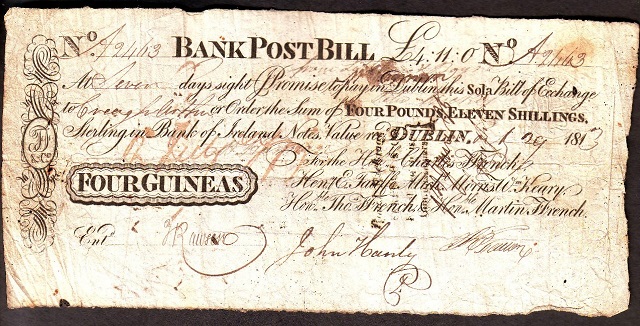 No. A2463 BANK POST BILL £4:11:0 No. A2463
At Seven days sight I Promise to pay in Dublin this Sola Bill of Exchange
to or Order the Sum of FOUR POUNDS, ELEVEN SHILLINGS,
Sterling in Bank of Ireland Notes, Value rec DUBLIN. 29 1813
For the Charles Ffrench,
FOUR GUINEAS
Honble. E. Taaffe, Morris, Keary,
Honble. Thos. Ffrench & Honble. Martin Ffrench.
D
& Co.
Entd.
John Hanly